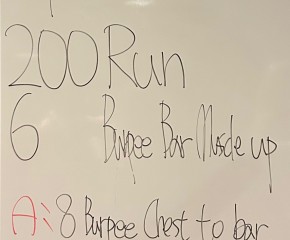 200 Run
6 Burpee Bar Muscle up
A: 8 Burpee Chest to bar